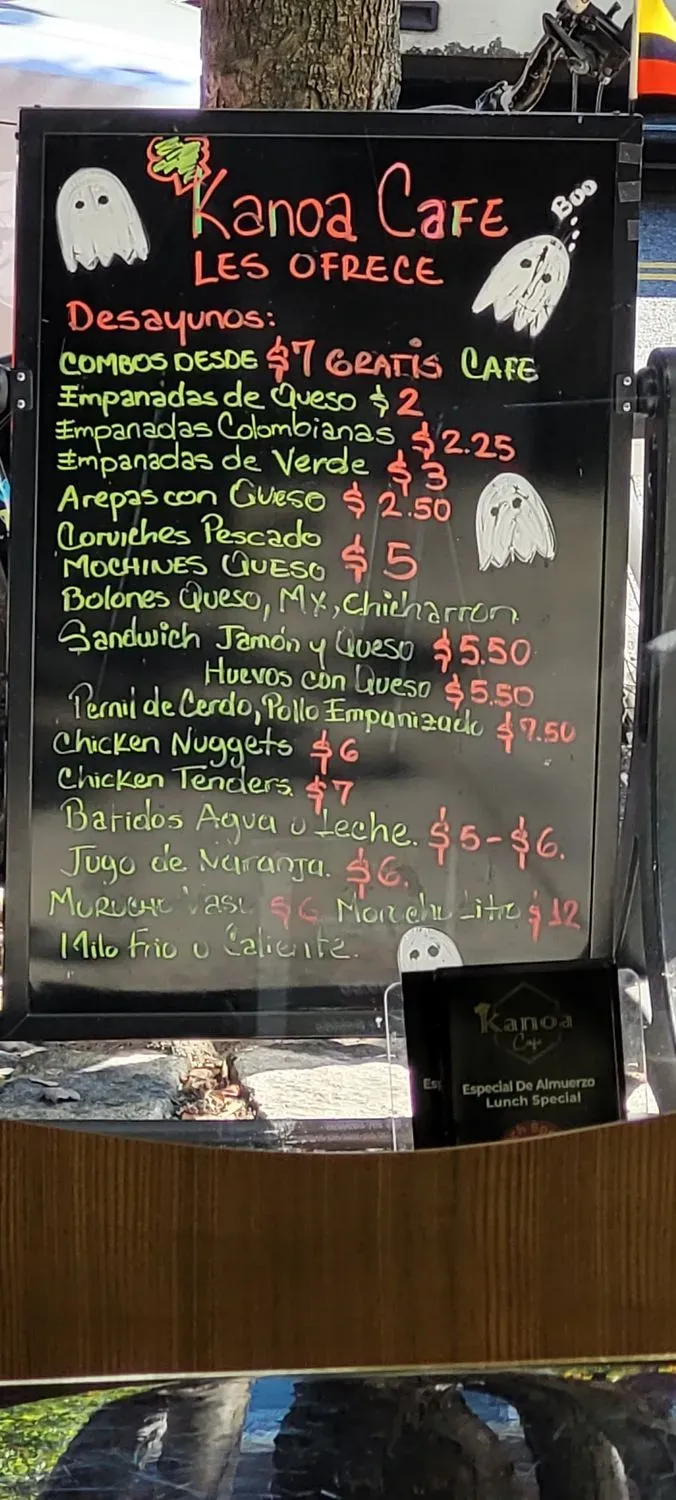 Kanoa CaFE
Boo
LES OFRECE
Desayunos:
COMBOS DESDE $7 GRATIS CAFE
Empanadas de Queso $2
Empanadas Colombianas $2.25
Empanadas de Verde $3
Arepas con Queso $2.50
Corviches Pescado
MOCHINES QUESO $5
Bolones Queso, Mx, chicharron
Sandwich Jamón y Queso $5.50
Huevos con Queso $5.50
Pernil de Cerdo, Pollo Empanizado $7.50
Chicken Nuggets $6
Chicken Tenders. $7
Batidos Agua o Leche. $5-$6.
Jugo de Naranja. $6.
Morocho Vaso $6 Morocho Litro $12
Milo Frio o Caliente.
Kanoa
Cafe
Especial De Almuerzo
Lunch Special